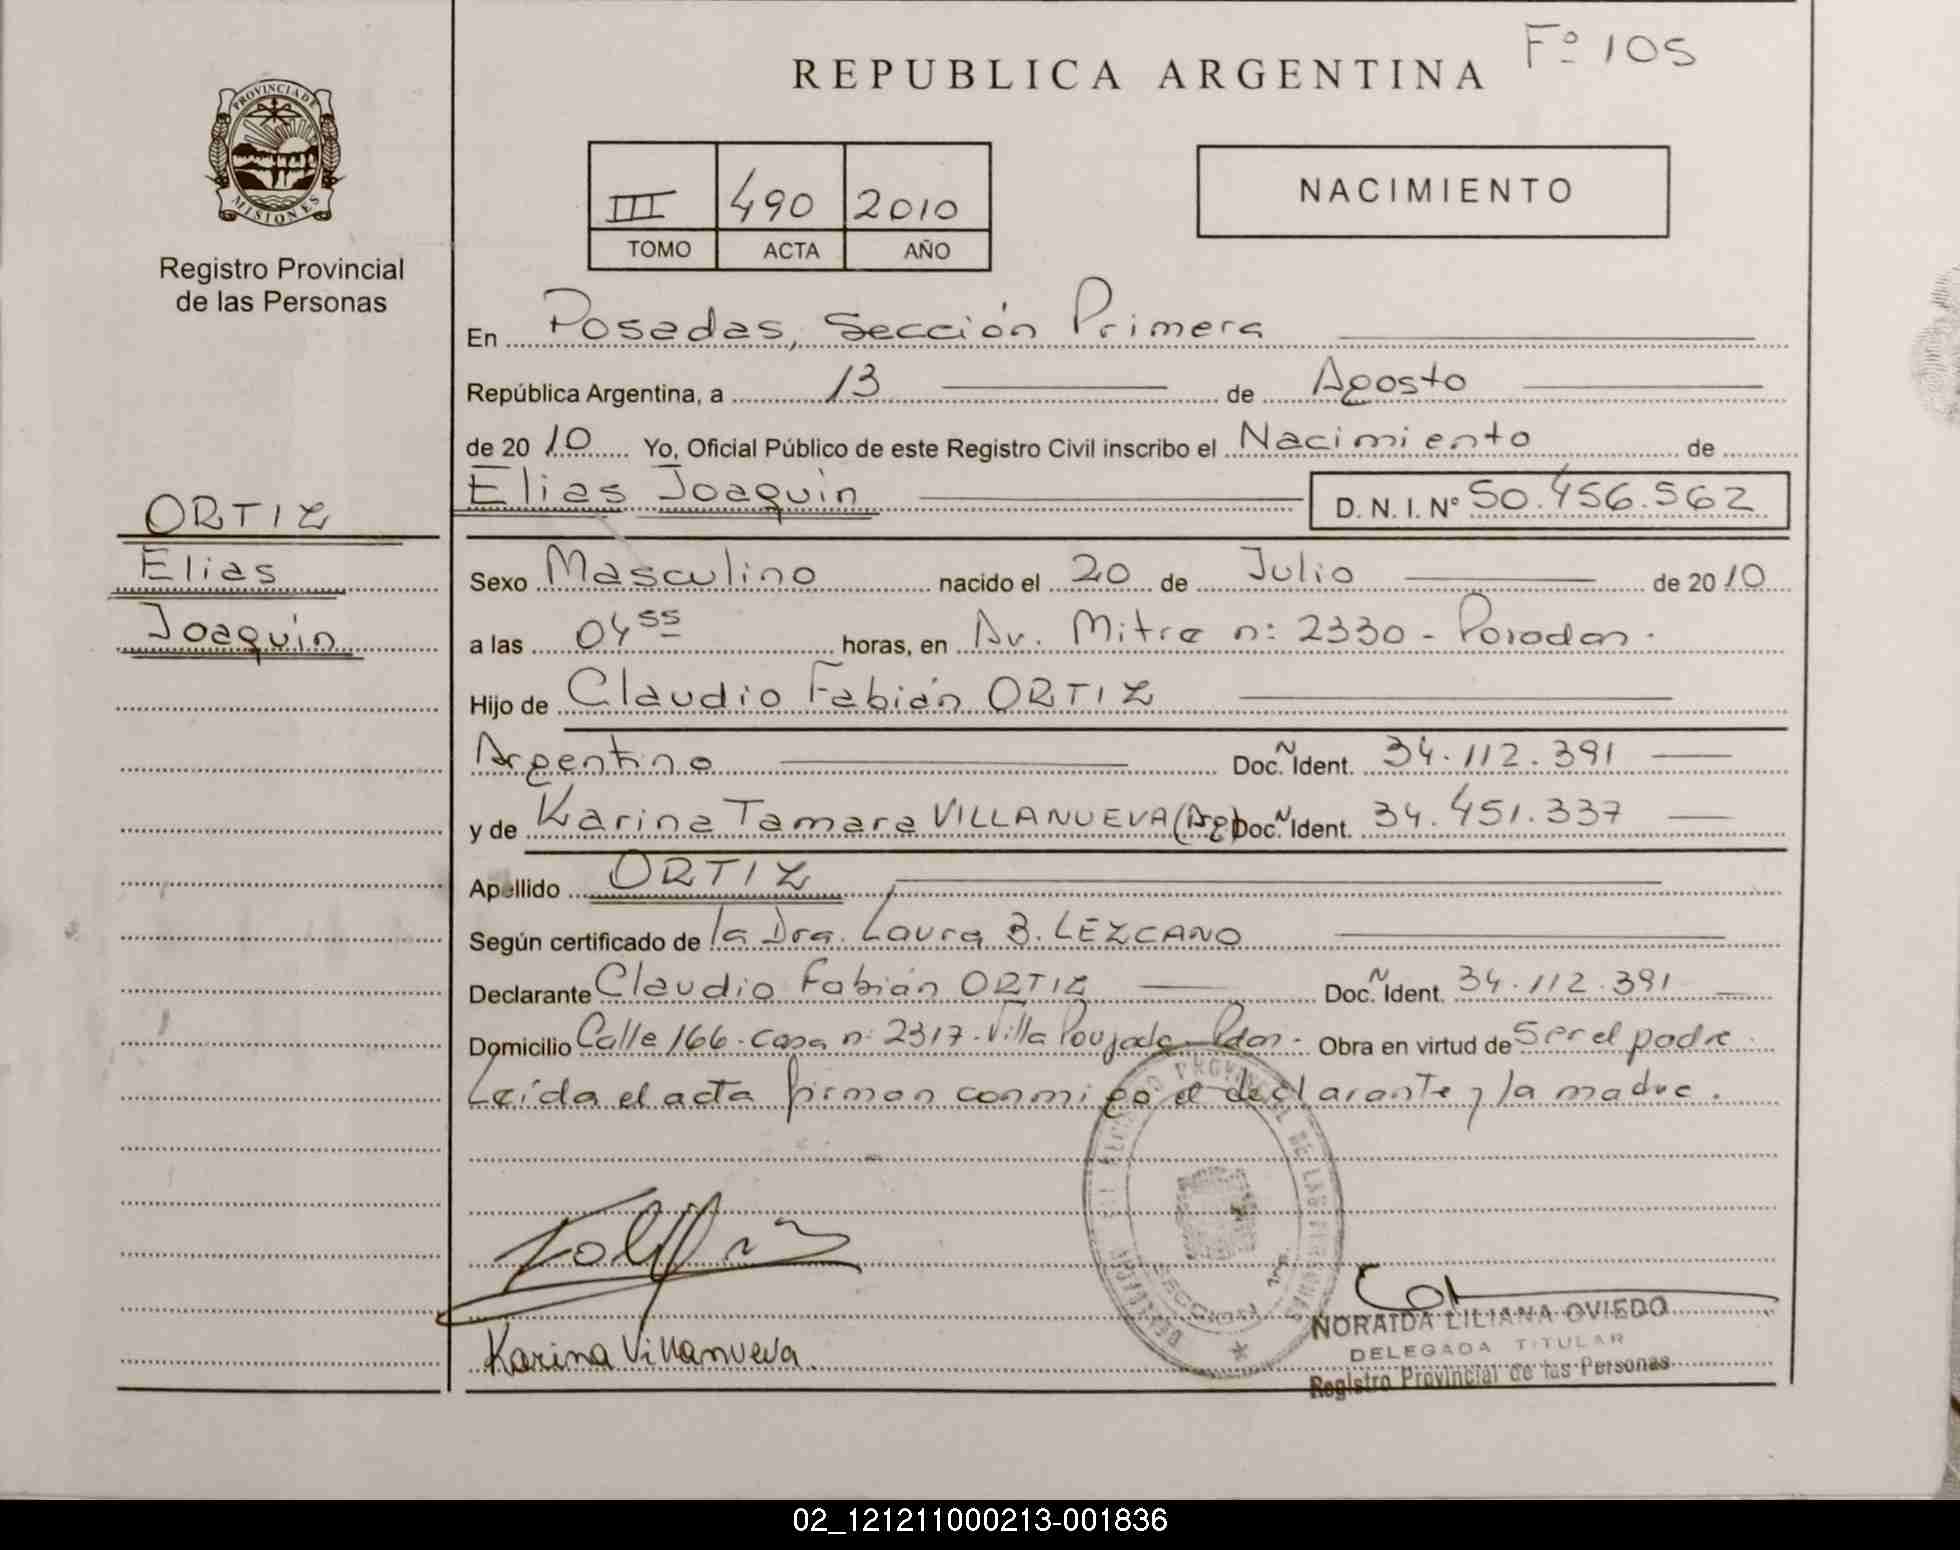 Fº 105
REPUBLICA ARGENTINA
PROVINCIA DE
MISIONES
Registro Provincial
de las Personas
III 490 2010
TOMO ACTA AÑO
NACIMIENTO
En Posadas, Sección Primera
República Argentina, a 13 de Agosto
de 20 10 Yo, Oficial Público de este Registro Civil inscribo el Nacimiento de
Elias Joaquin D. N. I. Nº 50.456.562
ORTIZ
Elias
Joaquin
Sexo Masculino nacido el 20 de Julio de 20 10
a las 04 55 horas, en Av. Mitre n: 2330 - Posadas.
Hijo de Claudio Fabián ORTIZ
Argentino Doc. Ñ Ident. 34.112.391
y de Karina Tamara VILLANUEVA (Arg) Doc. Ñ Ident. 34.451.337
Apellido ORTIZ
Según certificado de la Dra. Laura B. LEZCANO
Declarante Claudio Fabián ORTIZ Doc. Ñ Ident. 34.112.391
Domicilio Calle 166 - casa n: 2317 - Villa Poujade - Pdas - Obra en virtud de Ser el padre.
Leída el acta firman conmigo el declarante y la madre.
Karina Villanueva
NORAIDA LILIANA OVIEDO
DELEGADA TITULAR
Registro Provincial de las Personas
02_121211000213-001836